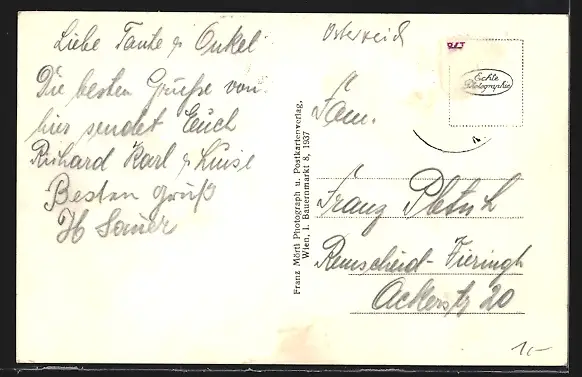 Liebe Tante & Onkel
Die besten Grüße von
hier sendet Euch
Richard Karl & Luise
Besten Gruß
H Sauer
Franz Mörtl Photograph u. Postkartenverlag,
Wien, I. Bauernmarkt 8, 1937
Österreich
Echte
Photographie
Fam.
Franz
Remscheid-Vieringh
Ackerstr 20
1,-